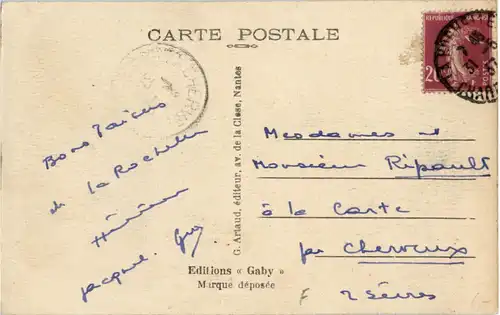 CARTE POSTALE
RÉPUBLIQUE FRANÇAISE
POSTES
Bons Baisers
de La Rochelle
Jacques. Guy
G. Artaud, éditeur, av. de la Close, Nantes
Editions « Gaby »
Marque déposée
Mesdames et
Monsieur Ripault
à la Carte
par Cherveux
2 Sèvres
F